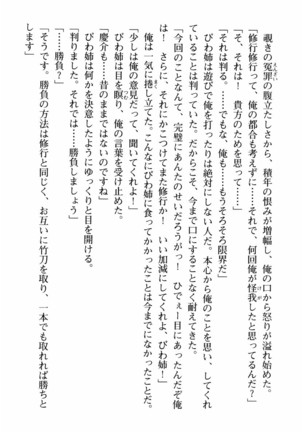 覗きの冤罪の腹立たしさから、積年の恨みが増幅し、俺の口から怒りが溢れ始めた。
「修行修行って、俺の都合も考えずに……それで、何回俺が怪我したと思ってるんだ？」
「そ、それは！　貴方のためを思って……」
「それは判る。でもな、でも……もうそろそろ限界だ」
びわ姉は遊びで俺を打ったりは絶対にしない人だ。本心から俺のことを思い、してくれ
ていることは判っていた。だからこそ、今まで口にすることなく耐えてきた。
「今回のことなんて、完璧にあんたのせいだろうがっ！　ひでぇー目にあったんだぞ俺
は！　さらに、それにかこつけてまた修行か！　いい加減にしてくれよ、びわ姉！」
俺は一気に捲し立てた。こんなにびわ姉に食ってかかったことは今までになかったことだ。
「少しは俺の意見だって、聞いてくれよ！」
びわ姉は目を瞑り、俺の言葉を受け止めた。
「慶介も……昔のままではないのですね」
びわ姉は何かを決意したようにゆっくりと目を開ける。
「判りました。それでは……勝負しましょう」
「……勝負？」
「そうです。勝負の方法は修行と同じく、お互いに竹刀を取り、一本でも取れれば勝ちと
します」